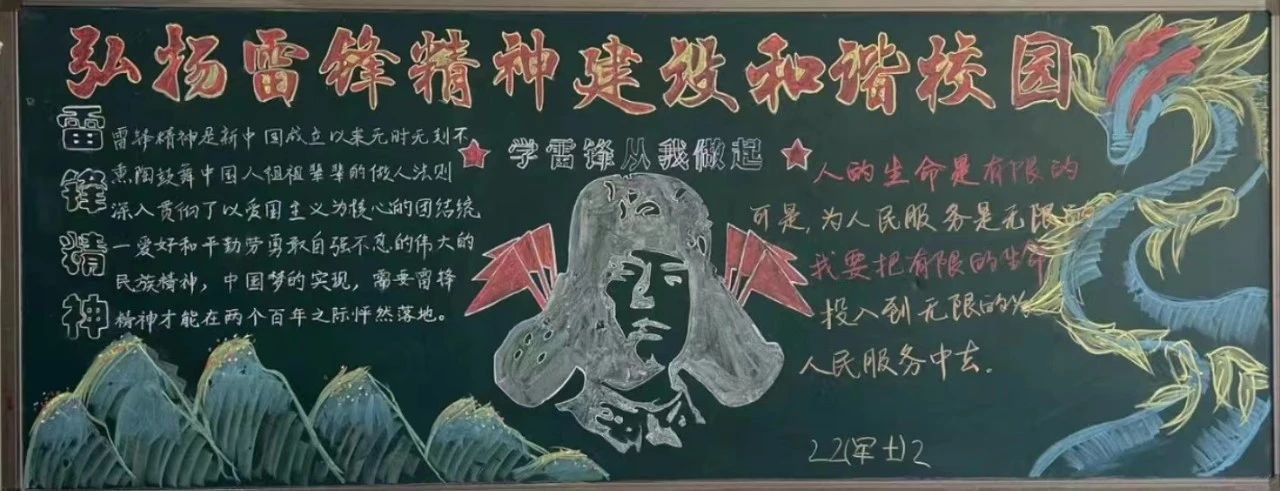 弘扬雷锋精神建设和谐校园
雷锋精神
雷锋精神是新中国成立以来无时无刻不
熏陶鼓舞中国人祖祖辈辈的做人法则
深入贯彻了以爱国主义为核心的团结统
一爱好和平勤劳勇敢自强不息的伟大的
民族精神，中国梦的实现，需要雷锋
精神才能在两个百年之际怦然落地。
学雷锋从我做起
人的生命是有限的
可是，为人民服务是无限的
我要把有限的生命
投入到无限的为
人民服务中去.
22(军士)2